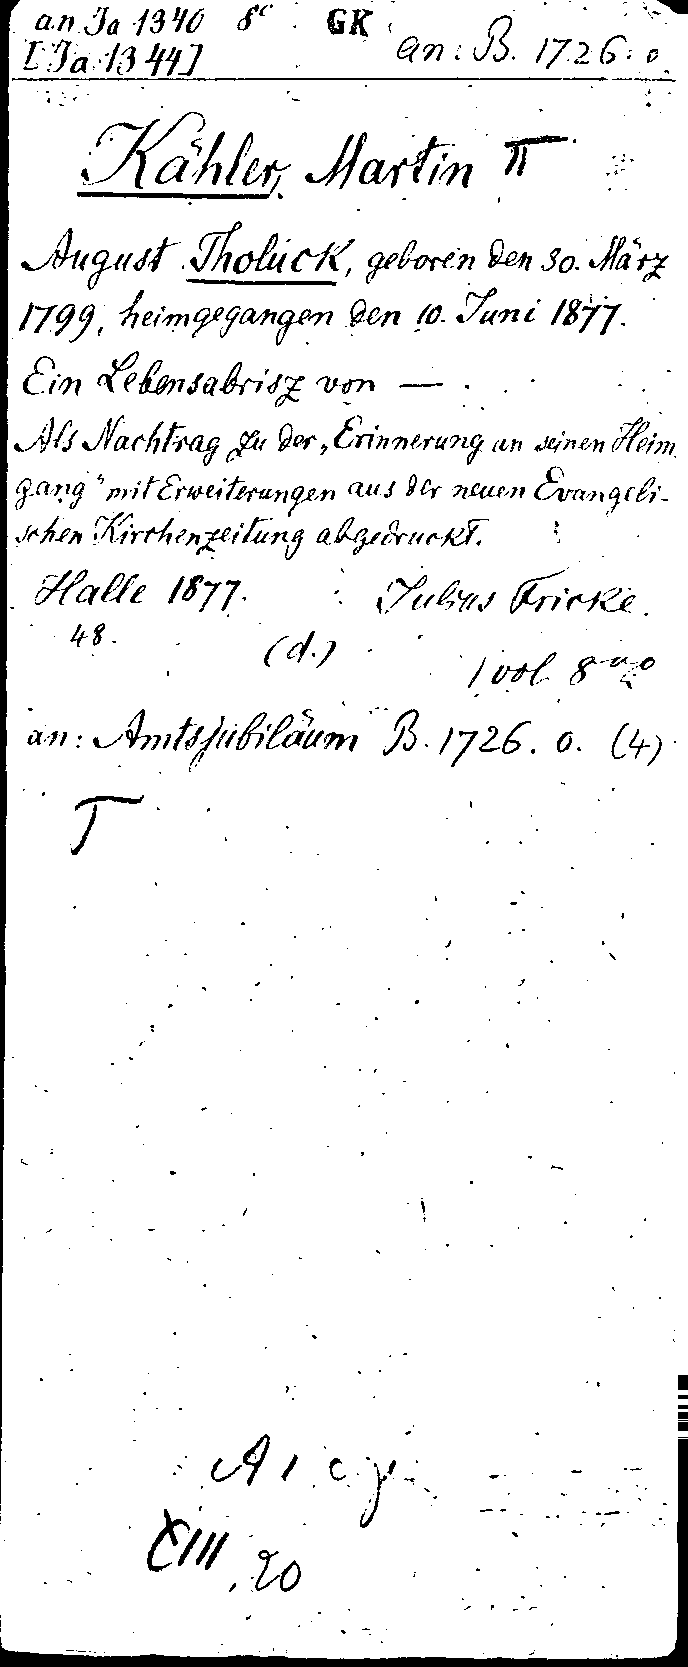 an Ja 1340 8° GK
[Ja 1344] an: B. 1726. o.
Kähler, Martin II
August Tholuck, geboren den 30. März
1799, heimgegangen den 10. Juni 1877.
Ein Lebensabrisz von —.
Als Nachtrag zu der „Erinnerung an seinen Heim
gang" mit Erweiterungen aus der neuen Evangeli-
schen Kirchenzeitung abgedruckt.
Halle 1877. Julius Fricke.
48.
(d.)
1 vol 8vo
an: Amtsjubiläum B. 1726. o. (4)
T
XIII, 20